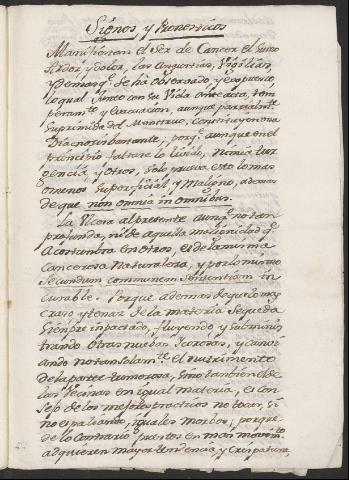 Signos y Pronosticos
Manifiestan el Ser de Cancer el sumo
Ardor, y dolor, las Angustias, Vigilias,
y Demas q.e se ha observado, y expuesto
lo qual junto con su Vida anteacta, tem
peram.to y evacuacion, aunque parcialm.te
suprimida del Menstruo, constituyen una
Diagnosis bastante; porq.e aunque en el
principio faltare lo livido, nimia tur
gencia, y otros, solo prueva esto lo mas
o menos superficial, y Maligno, ademas
de que non omnia in omnibus.
La Ulcera al presente aunq.e no tan
profunda, ni de aquella malignidad q.e
Acostumbra en otros, es de la misma
Cancerosa Naturaleza, y por lo mismo
Secundum communem Sententiam in
curable. Porque ademas de que lo mas
craso y tenaz de la materia se queda
siempre inpactado, fluyendo y subminis
trando otras nuevas, y convi
ando no tan solam.te el nutrimento
de la parte tumorosa, sino tambien el de
las Vecinas en igual materia, es con
sejo de los mejores practicos no tocar, si
no es paliando, iguales morbos; porque
de lo contrario puestos en mas movim.to
adquieren mayor tendencia, y Crispatura,